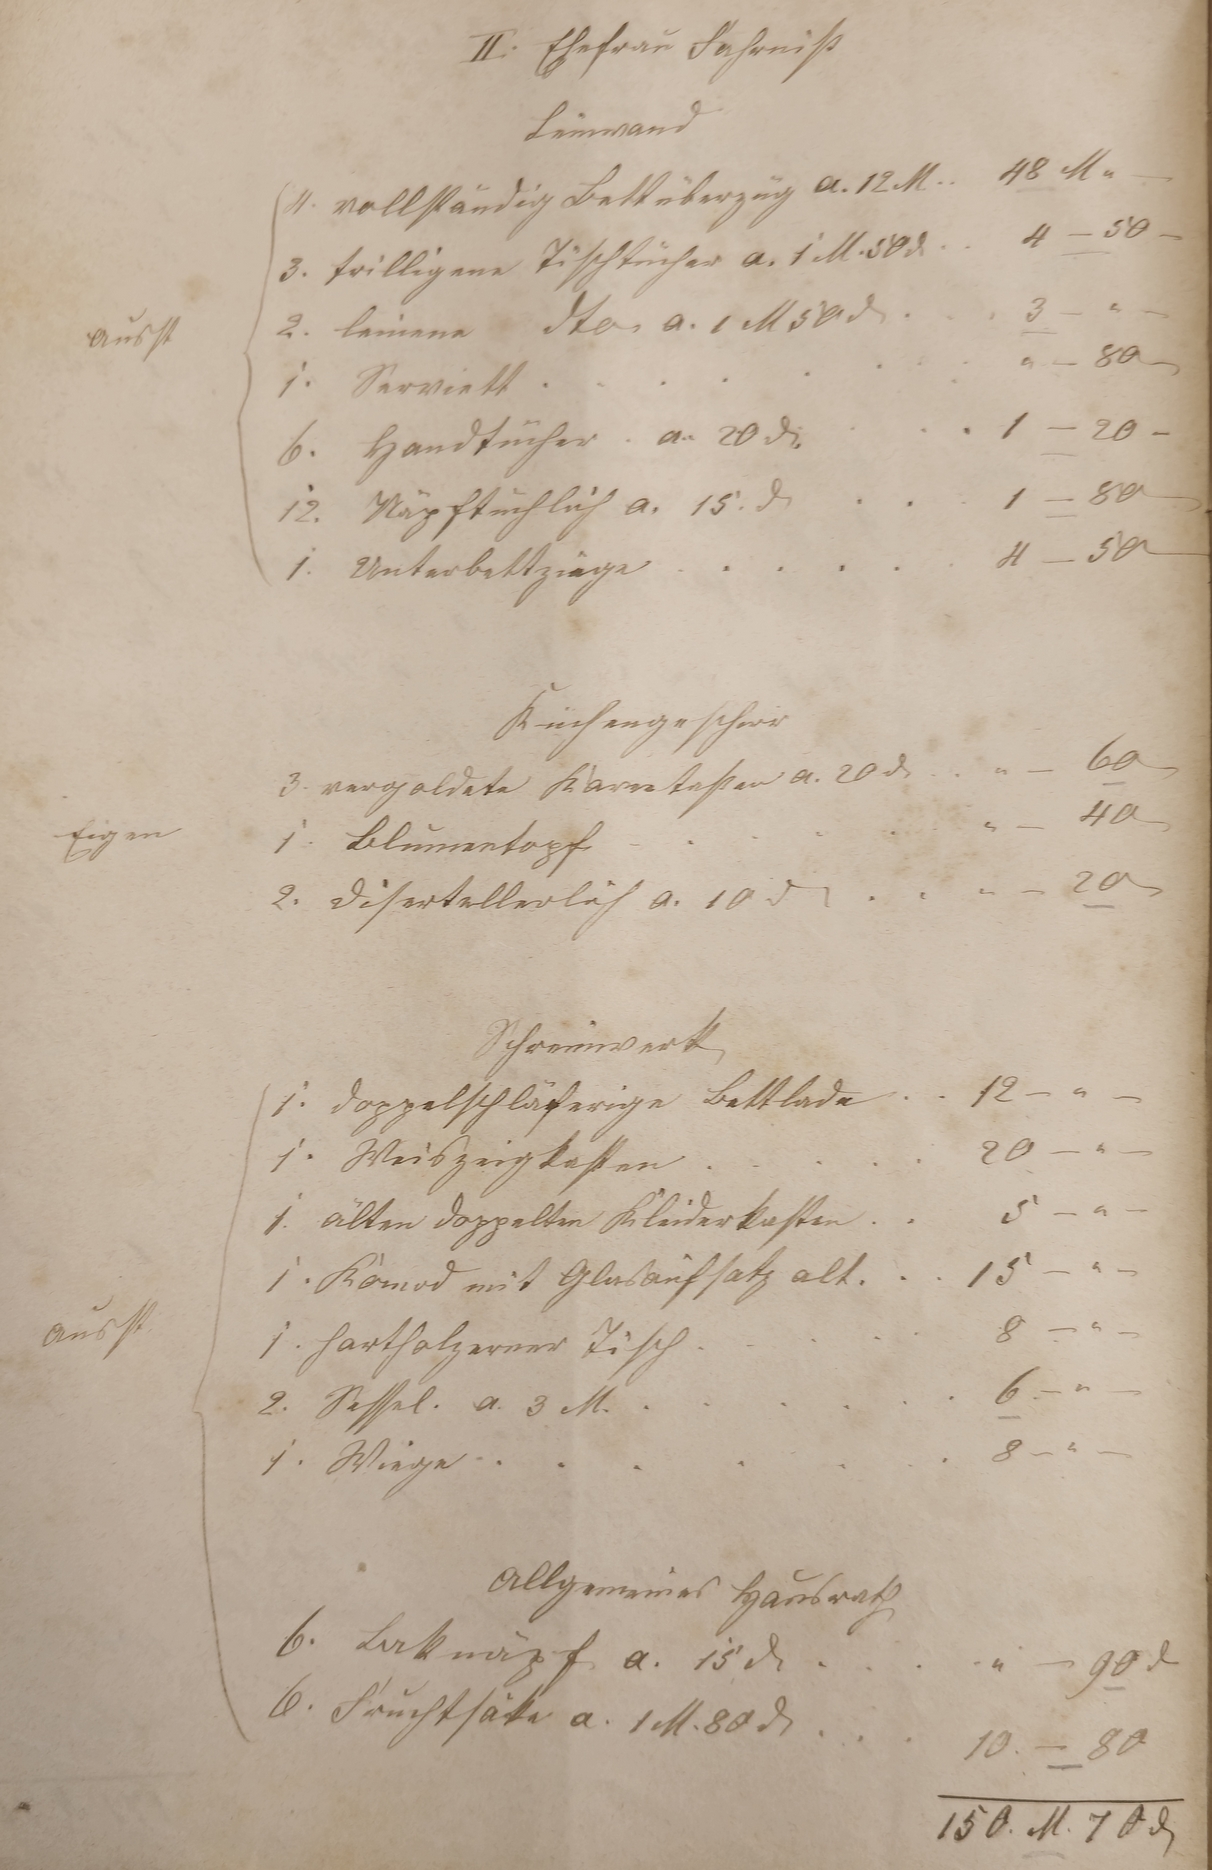 II. Ehefrau Fahrniß
Leinwand
4. vollständig Bettüberzüg a. 12 M. . 48 M „ —
3. trilligene Tischtücher a. 1 M. 50 d . . 4 — 50 —
Ausst 2. leinene dto a. 1 M 50 d . . . 3 — „ —
1. Serviett . . . . . . „ — 80
6. Handtücher . a. 20 d. . . . 1 — 20 —
12. Näpftüchlich a. 15. d . . . 1 — 80
1. Unterbettziege . . . . . 4 — 50
Küchengeschirr
3. vergoldete a. 20 d . . „ — 60
Eigen 1. Blumentopf . . . . „ — 40
2. Disertellerlich a. 10 d . . „ — 20
Schreinwerk
1. doppelschläferige Bettlade . . 12 — „ —
1. Weiszeigkasten . . . . . 20 — „ —
1. älten doppelten Kleiderkasten . . 5 — „ —
1. Komod mit Glasaufsatz alt. . . 15 — „ —
Ausst 1. hartholzerner Tisch . . . . . 8 — „ —
2. Sessel. a. 3 M. . . . . . . 6 — „ —
1. Wiege . . . . . . . 8 — „ —
Allgemeines Hausrath
6. Baknäpf a. 15 d . . . . „ — 90 d
6. Fruchtsäke a. 1 M. 80 d . . . 10. — 80
150. M. 70 d